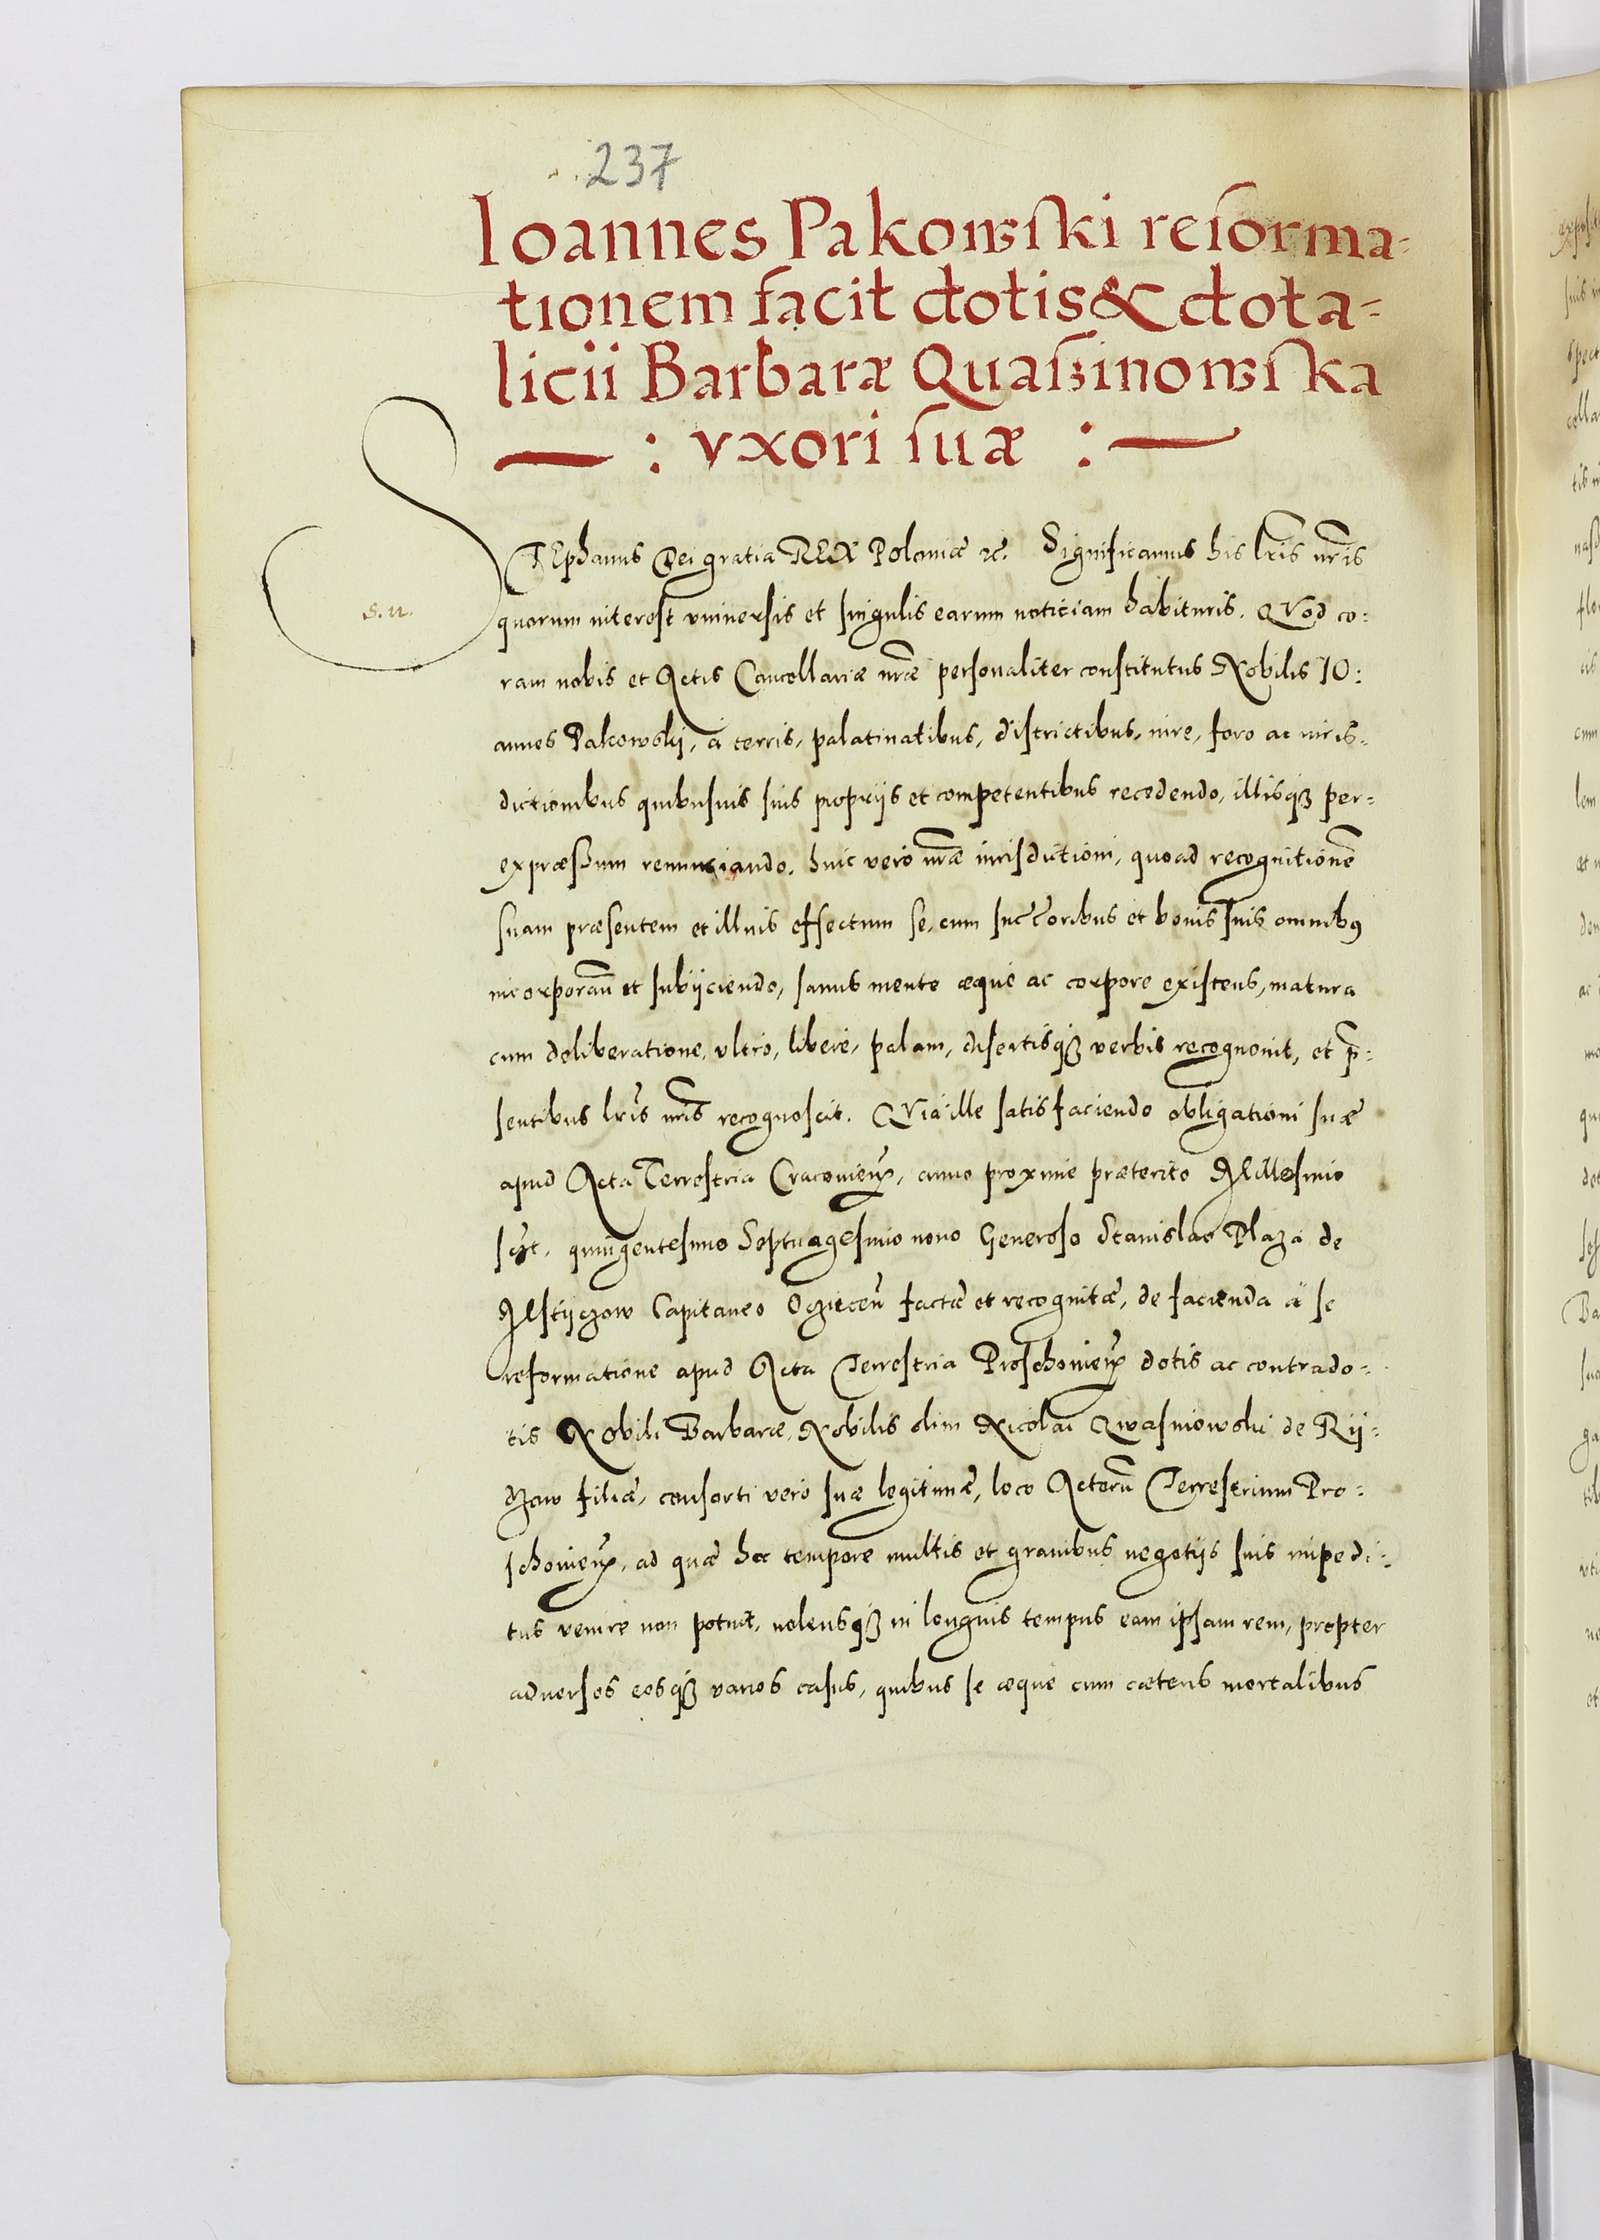 237
Ioannes Pakowski reforma-
tionem facit dotis & dota-
licii Barbaræ Quaßinowska
: vxori suæ :
STEphanus Dei gratia REX Poloniæ &c. Significamus his lr̃is nr̃is
s. u.
quorum interest vniuersis et singulis earum noticiam habituris. QVod co:
ram nobis et Actis Cancellariæ nr̃æ personaliter constitutus Nobilis IO:
annes Pakowskij, à terris, palatinatibus, districtibus, iure, foro ac iuris-
dictionibus quibusuis suis proprijs et competentibus recedendo, illisqȝ per-
expræßum renunciando. huic verò nr̃æ iurisdictioni, quoad recognitionẽ
suam præsentem et illius effectum se, cum succ̃oribus et bonis suis omnibꝰ
incorporan̄ et subijciendo, sanus mente æque ac corpore existens, matura
cum deliberatione, vltro, liberè, palam, disertisqȝ verbis recognouit, et p̃:
sentibus lr̃is nr̃is recognoscit. QVia ille satisfaciendo obligationi suæ
apud Acta Terrestria Cracouien̄, anno proxime præterito Millesimo
sc̃zt, quingentesimo Septuagesimo nono Generoso Stanislao Plaza de
Mstijczow Capitaneo Oczicen̄ factæ et recognitæ, de facienda à se
reformatione apud Acta Terrestria Proschouien̄ dotis ac contrado-
tis Nobili Barbaræ, Nobilis olim Nicolai Qwasniowski de Rij-
czow filiæ, consorti verò suæ legitimæ, loco Actorũ Terrestrium Pro-
schouien̄, ad quæ hoc tempore multis et grauibus negotijs suis impedi-
tus venire non potuit, nolensqȝ in longius tempus eam ipsam rem, propter
aduersos eosqȝ varios casus, quibus se æque cum cæteris mortalibus